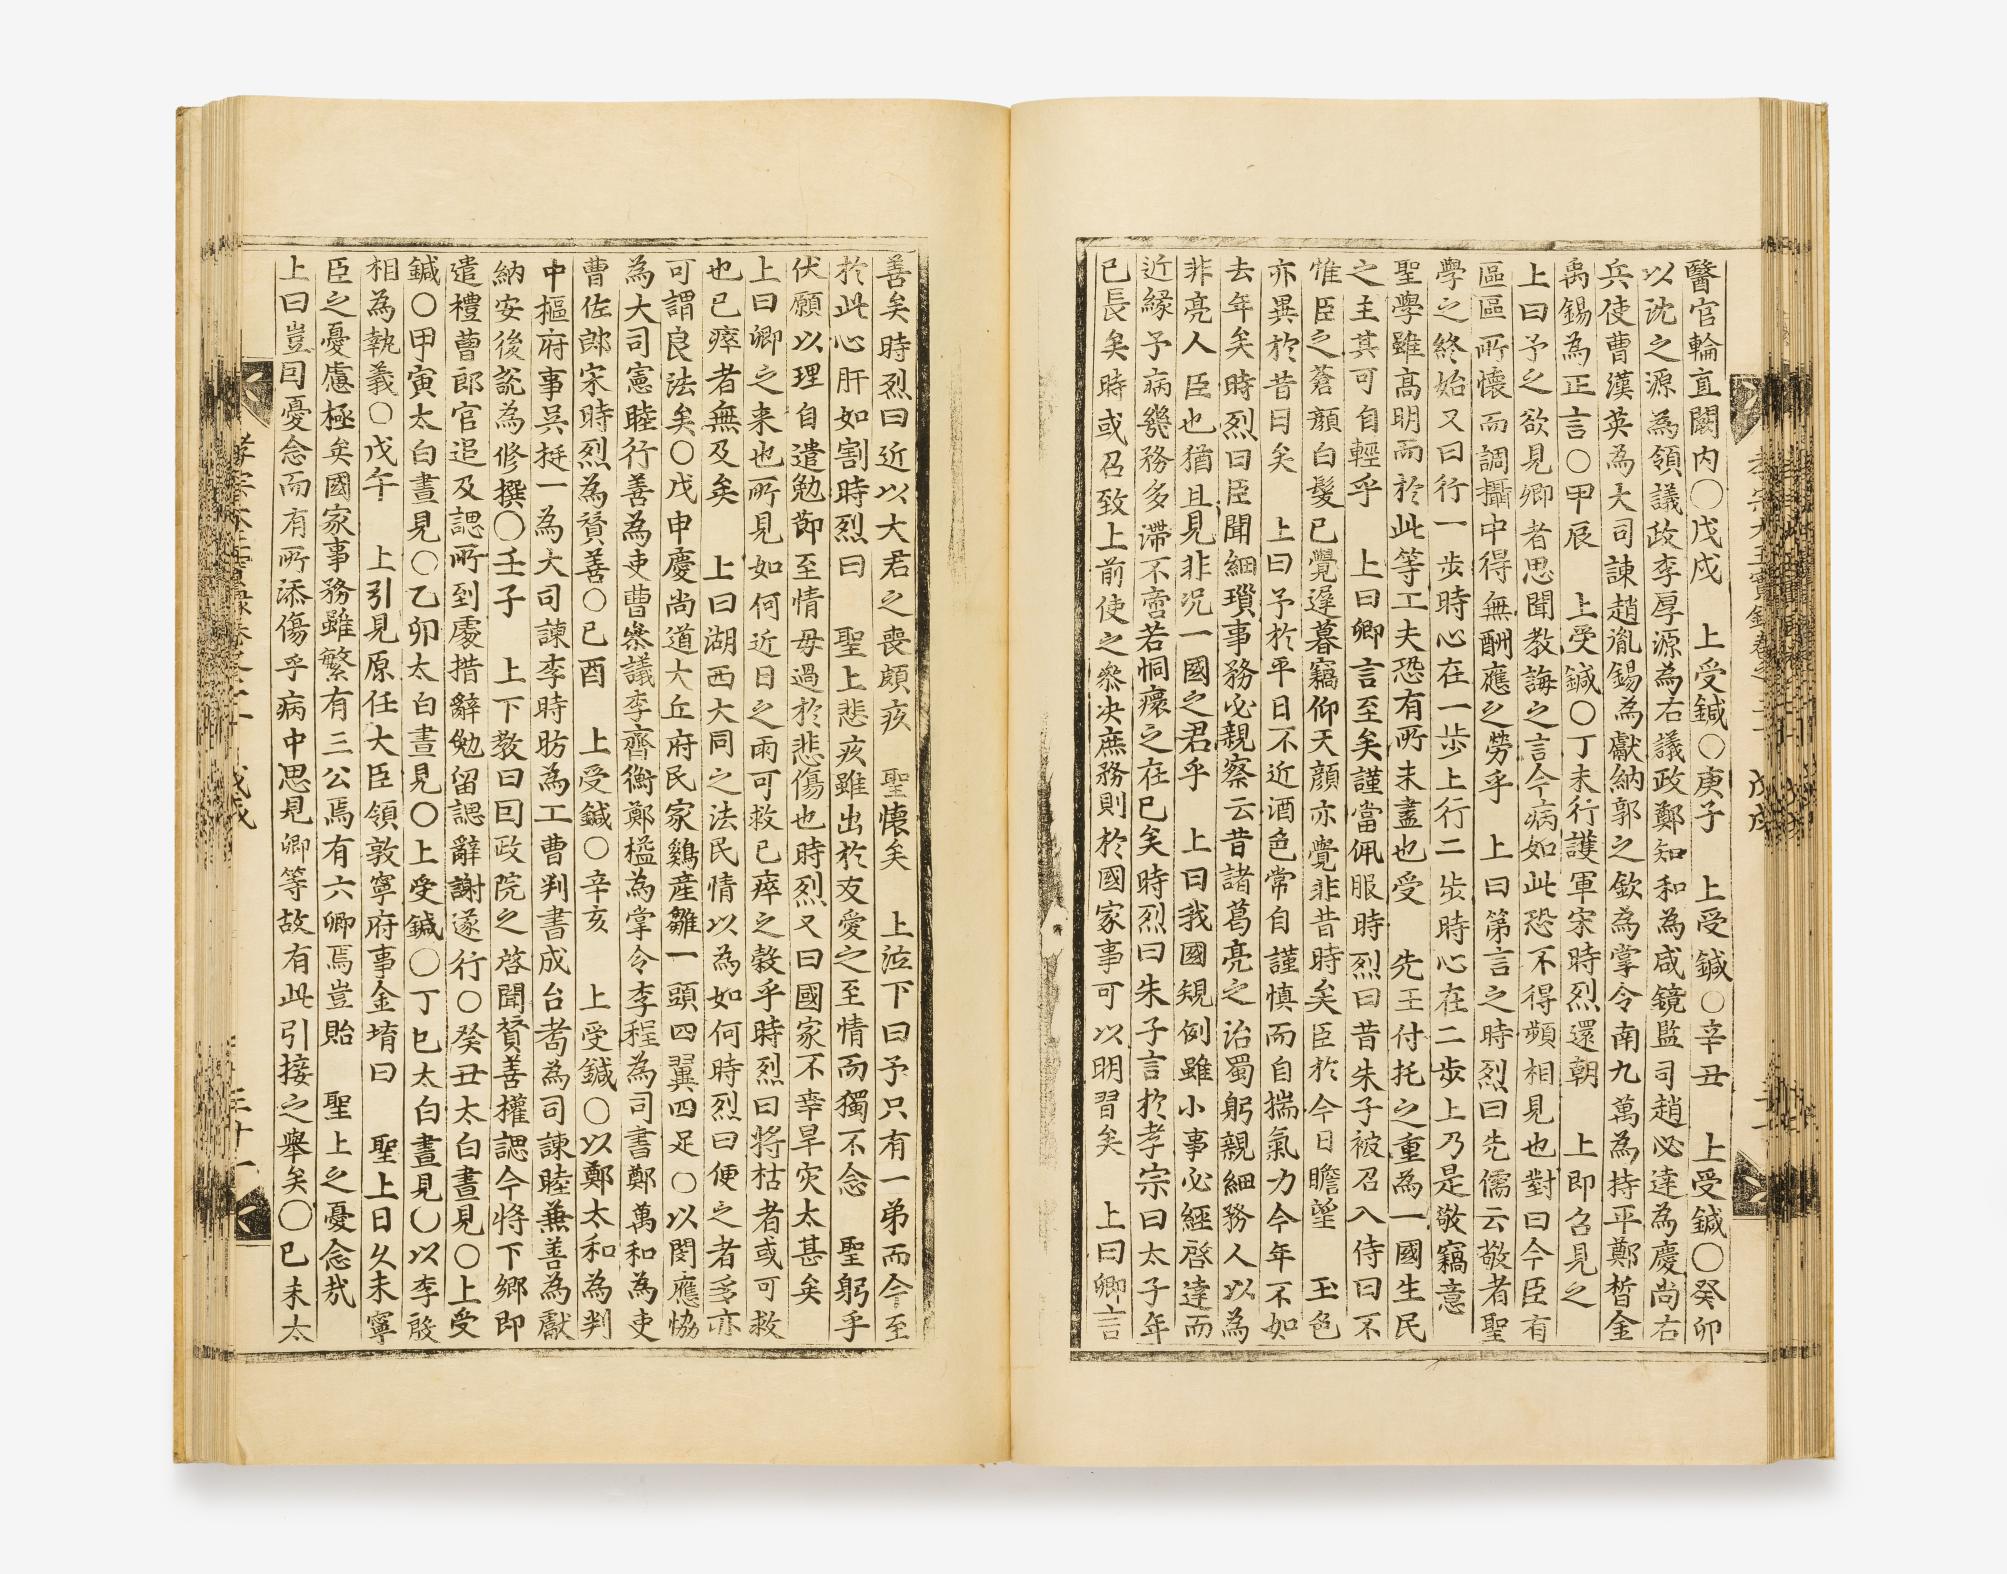 醫官輪直闕内〇戊戌 上受鍼〇庚子 上受鍼〇辛丑 上受鍼〇癸卯
以沈之源為領議政李厚源為右議政鄭知和為咸鏡監司趙必達為慶尚右
兵使曹漢英為大司諫趙胤錫為獻納郭之欽為掌令南九萬為持平鄭晳金
禹錫為正言〇甲辰 上受鍼〇丁未行護軍宋時烈還朝 上即召見之
上曰予之欲見卿者思聞教誨之言今病如此恐不得頻相見也對曰今臣有
區區所懷而調攝中得無酬應之勞乎 上曰第言之時烈曰先儒云敬者聖
學之終始又曰行一步時心在一步上行二步時心在二步上乃是敬竊意
聖學雖高明而於此等工夫恐有所未盡也受 先王付托之重為一國生民
之主其可自輕乎 上曰卿言至矣謹當佩服時烈曰昔朱子被召入侍曰不
惟臣之蒼顔白髮已覺遲暮竊仰天顔亦覺非昔時矣臣於今日瞻望 玉色
亦異於昔日矣 上曰予於平日不近酒色常自謹慎而自揣氣力今年不如
去年矣時烈曰臣聞細瑣事務必親察云昔諸葛亮之治蜀躬親細務人以為
非亮人臣也猶且見非况一國之君乎 上曰我國規例雖小事必經啓達而
近縁予病幾務多滯不啻若恫瘝之在已矣時烈曰朱子言於孝宗曰太子年
已長矣時或召致上前使之叅决庶務則於國家事可以明習矣 上曰卿言
善矣時烈曰近以大君之喪頗疚 聖懷矣 上泣下曰予只有一弟而今至
於此心肝如割時烈曰 聖上悲疚雖出於友愛之至情而獨不念 聖躬乎
伏願以理自遣勉節至情毋過於悲傷也時烈又曰國家不幸旱灾太甚矣
上曰卿之来也所見如何近日之雨可救已瘁之穀乎時烈曰將枯者或可救
也已瘁者無及矣 上曰湖西大同之法民情以為如何時烈曰便之者多亦
可謂良法矣〇戊申慶尚道大丘府民家鷄産雛一頭四翼四足〇以閔應恊
為大司憲睦行善為吏曹叅議李齊衡鄭榏為掌令李程為司書鄭萬和為吏
曹佐郎宋時烈為贊善〇已酉 上受鍼〇辛亥 上受鍼〇以鄭太和為判
中樞府事吳挺一為大司諫李時昉為工曹判書成台耉為司諫睦兼善為獻
納安後說為修撰〇壬子 上下教曰曰政院之啓聞贊善權諰今將下鄉即
遣禮曹郎官追及諰所到處措辭勉留諰辭謝遂行〇癸丑太白晝見〇上受
鍼〇甲寅太白晝見〇乙卯太白晝見〇上受鍼〇丁巳太白晝見〇以李殷
相為執義〇戊午 上引見原任大臣領敦寧府事金堉曰 聖上日久未寧
臣之憂慮極矣國家事務雖繁有三公焉有六卿焉豈貽 聖上之憂念哉
上曰豈曰憂念而有所添傷乎病中思見卿等故有此引接之舉矣〇已未太